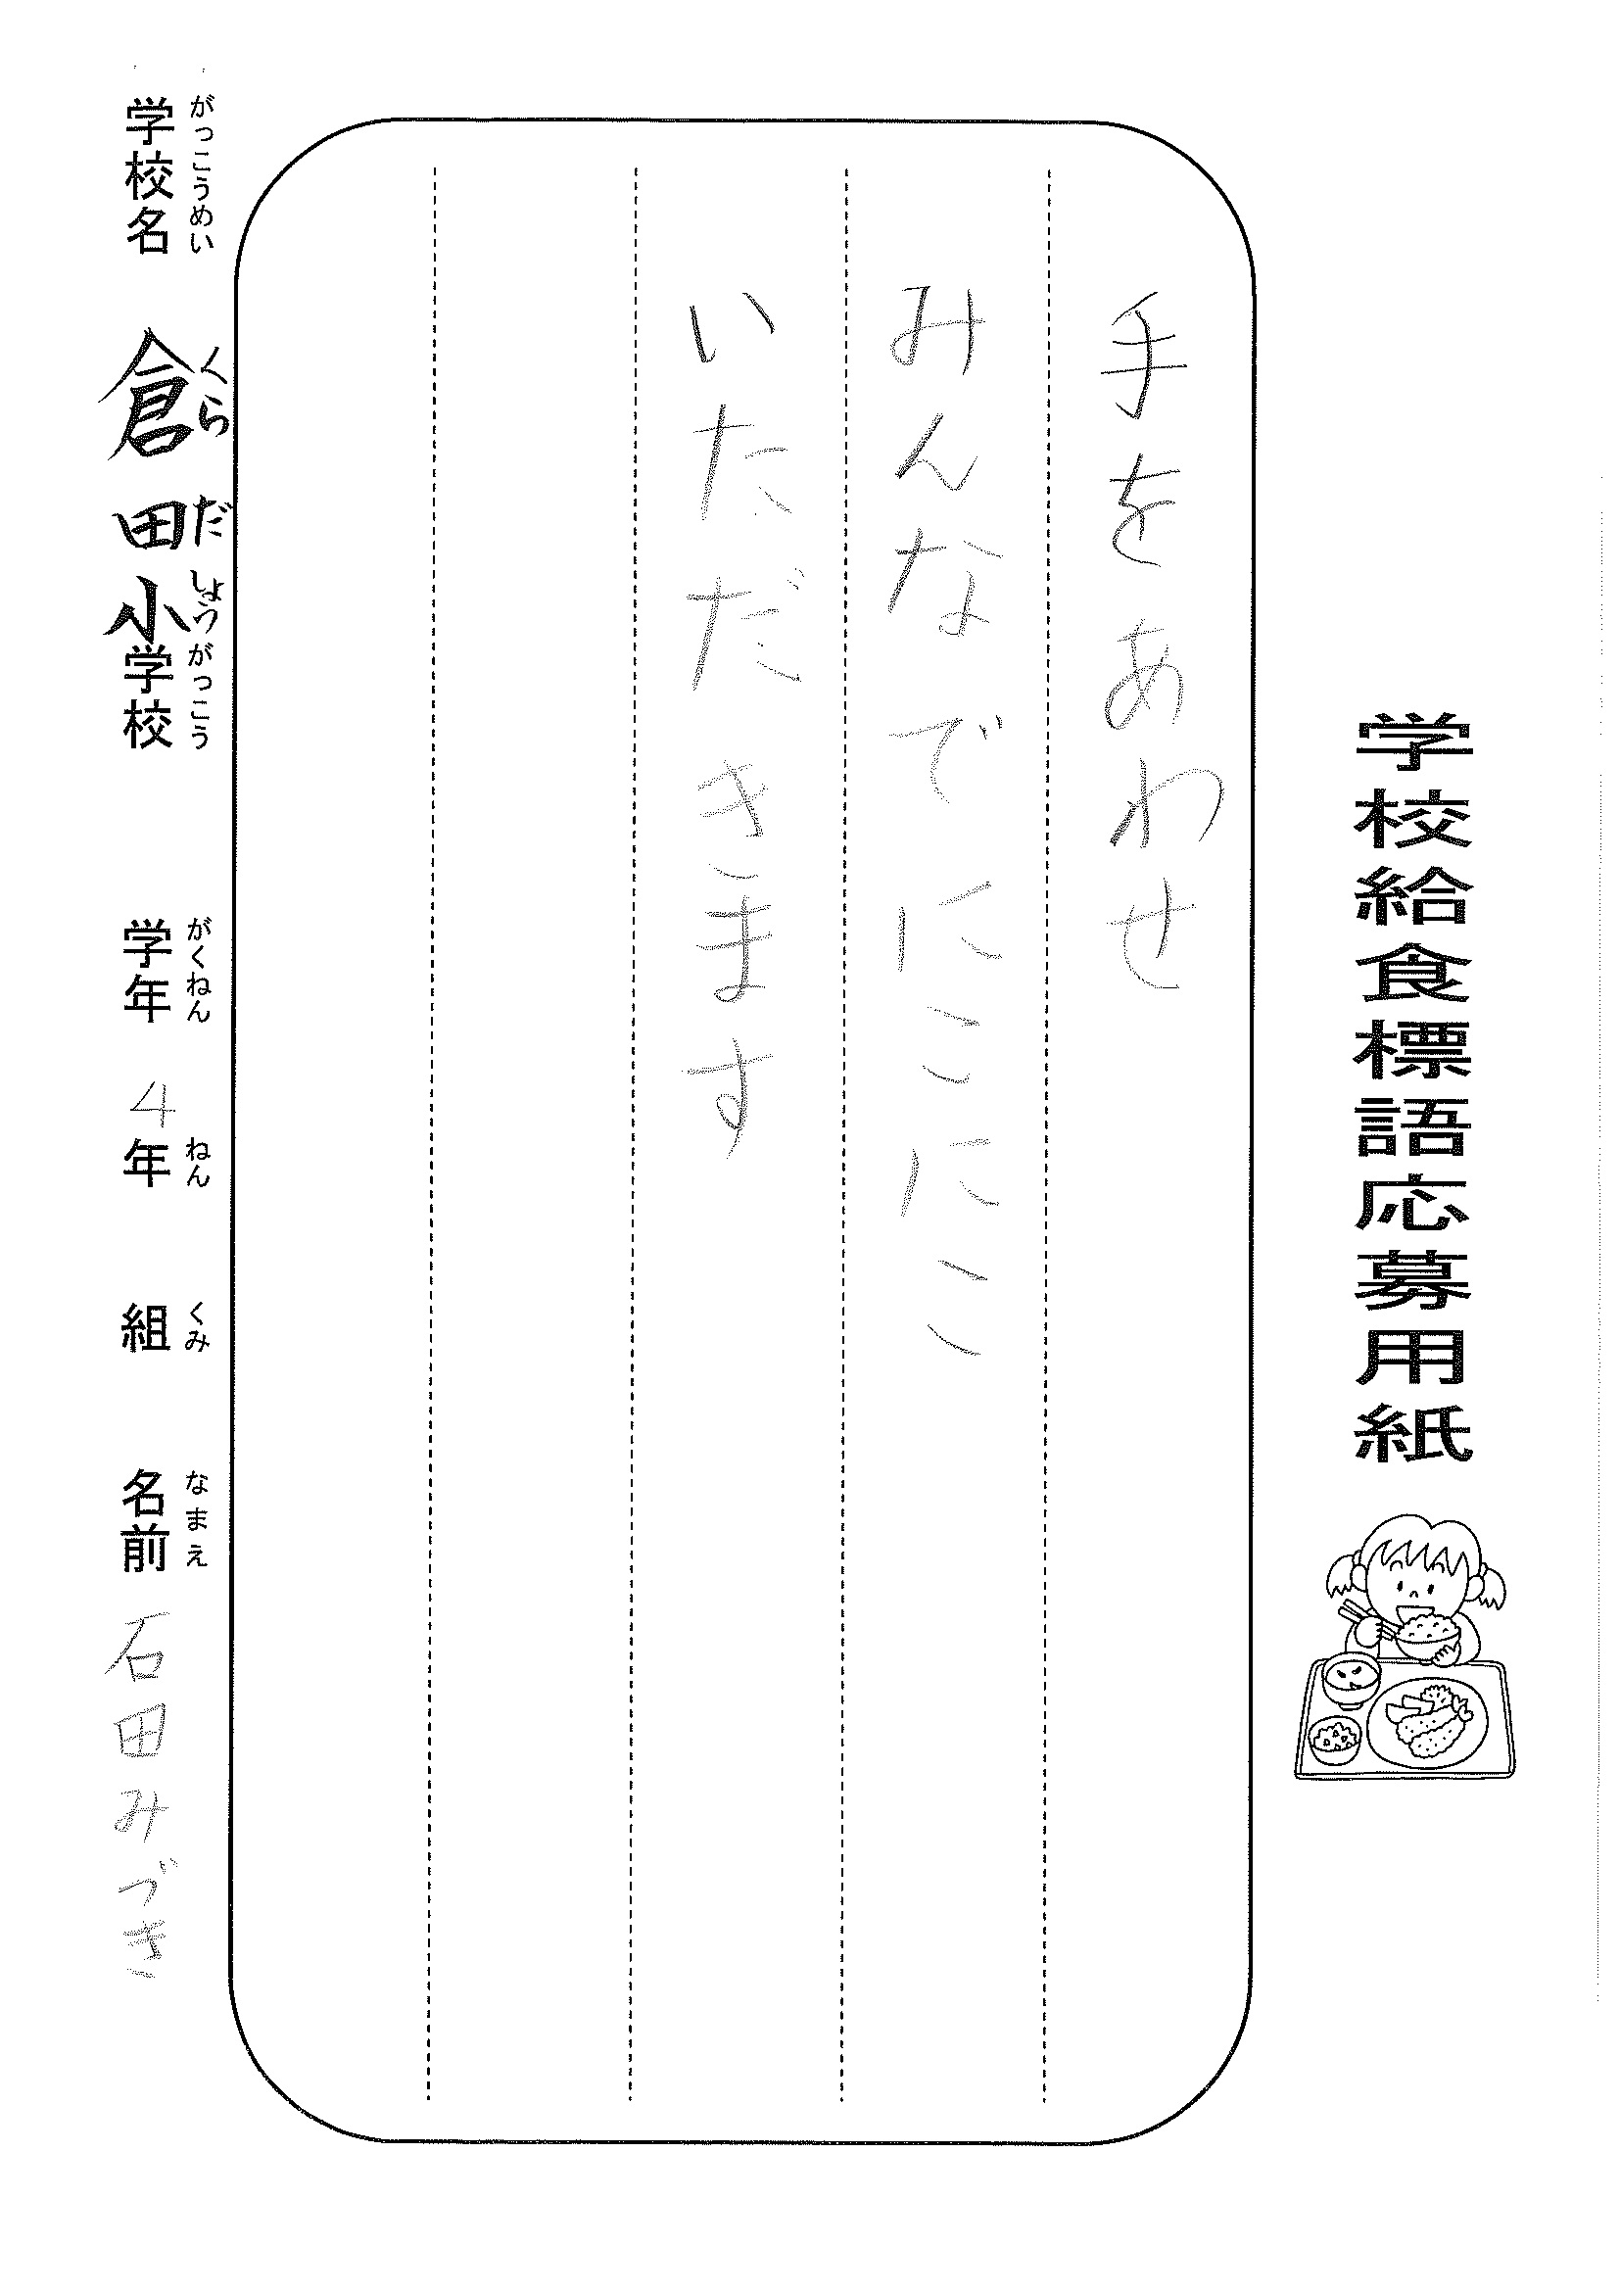 学校給食標語応募用紙
手をあわせ
みんなでにこにこ
いただきます
がっこうめい くらだしょうがっこう がくねん ねん くみ なまえ
学校名 倉田小学校 学年 4年 組 名前 石田みづき